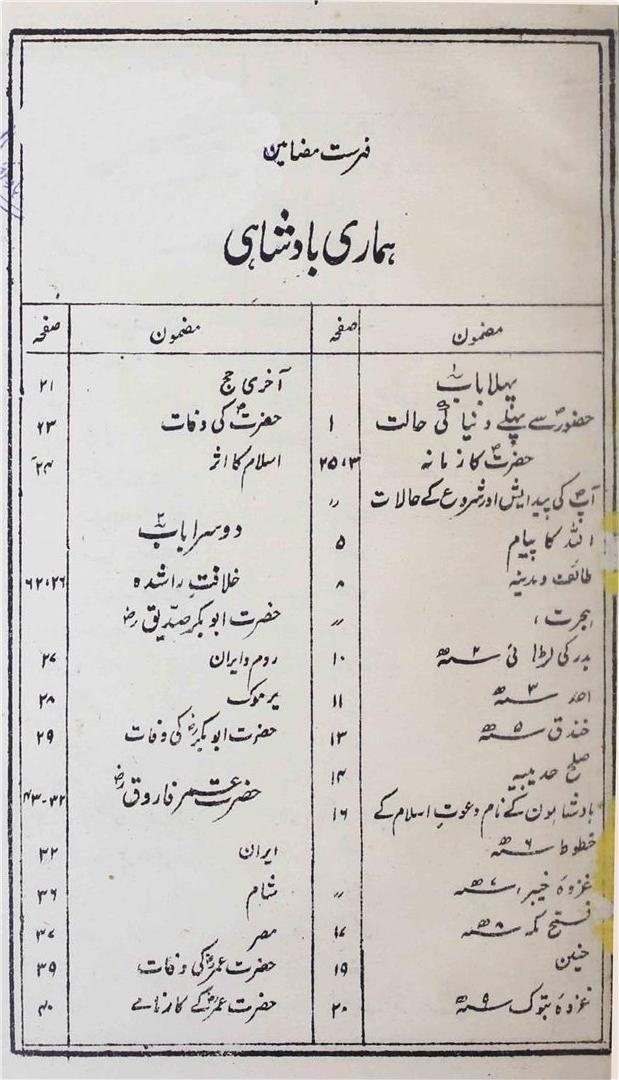 فہرست مضامین
ہماری بادشاہی
مضمون صفحہ
پہلا باب ۱
حضورؐ سے پہلے دنیا کی حالت ۱
حضرتؐ کا زمانہ ۳، ۲۵
آپؐ کی پیدایش اور شروع کے حالات 〃
اللہ کا پیام ۵
طائف و مدینہ ۸
ہجرت، 〃
بدر کی لڑائی ۲ھ ۱۰
احد ۳ھ ۱۱
خندق ۵ھ ۱۳
صلح حدیبیہ ۱۴
بادشاہوں کے نام دعوتِ اسلام کے ۱۶
خطوط ۶ھ
غزوہ خیبر، ۷ھ 〃
فتح مکہ ۸ھ ۱۷
حنین ۱۹
غزوہ تبوک ۹ھ ۲۰
مضمون صفحہ
آخری حج ۲۱
حضرتؐ کی وفات ۲۳
اسلام کا اثر ۲۴
دوسرا باب ۲
خلافتِ راشدہ ۲۶، ۶۲
حضرت ابوبکر صدیقؓ
روم و ایران ۲۷
یرموک ۲۸
حضرت ابوبکرؓ کی وفات ۲۹
حضرت عمر فاروقؓ ۳۲-۴۳
ایران ۳۲
شام ۳۶
مصر ۳۷
حضرت عمرؓ کی وفات ۳۹
حضرت عمرؓ کے کارنامے ۴۰